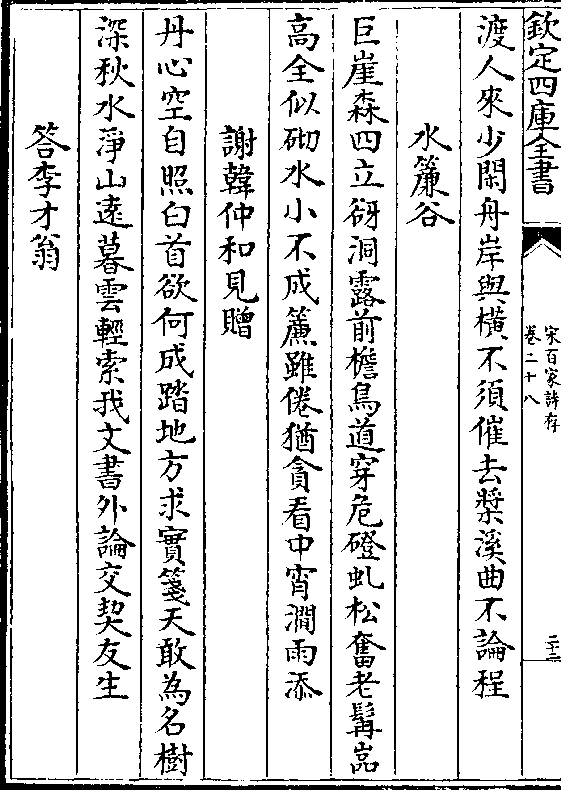 欽定四庫全書
宋百家詩存
卷二十八
二十二
渡人來少閑舟岸與橫不須催去槳溪曲不論程
水簾谷
巨崖森四立谺洞露前檐鳥道穿危磴虬松奮老髯嵓
高全似砌水小不成簾雖倦猶貪看中宵澗雨添
謝韓仲和見贈
丹心空自照白首欲何成踏地方求實箋天敢為名樹
深秋水淨山遠暮雲輕索我文書外論交契友生
答李才翁